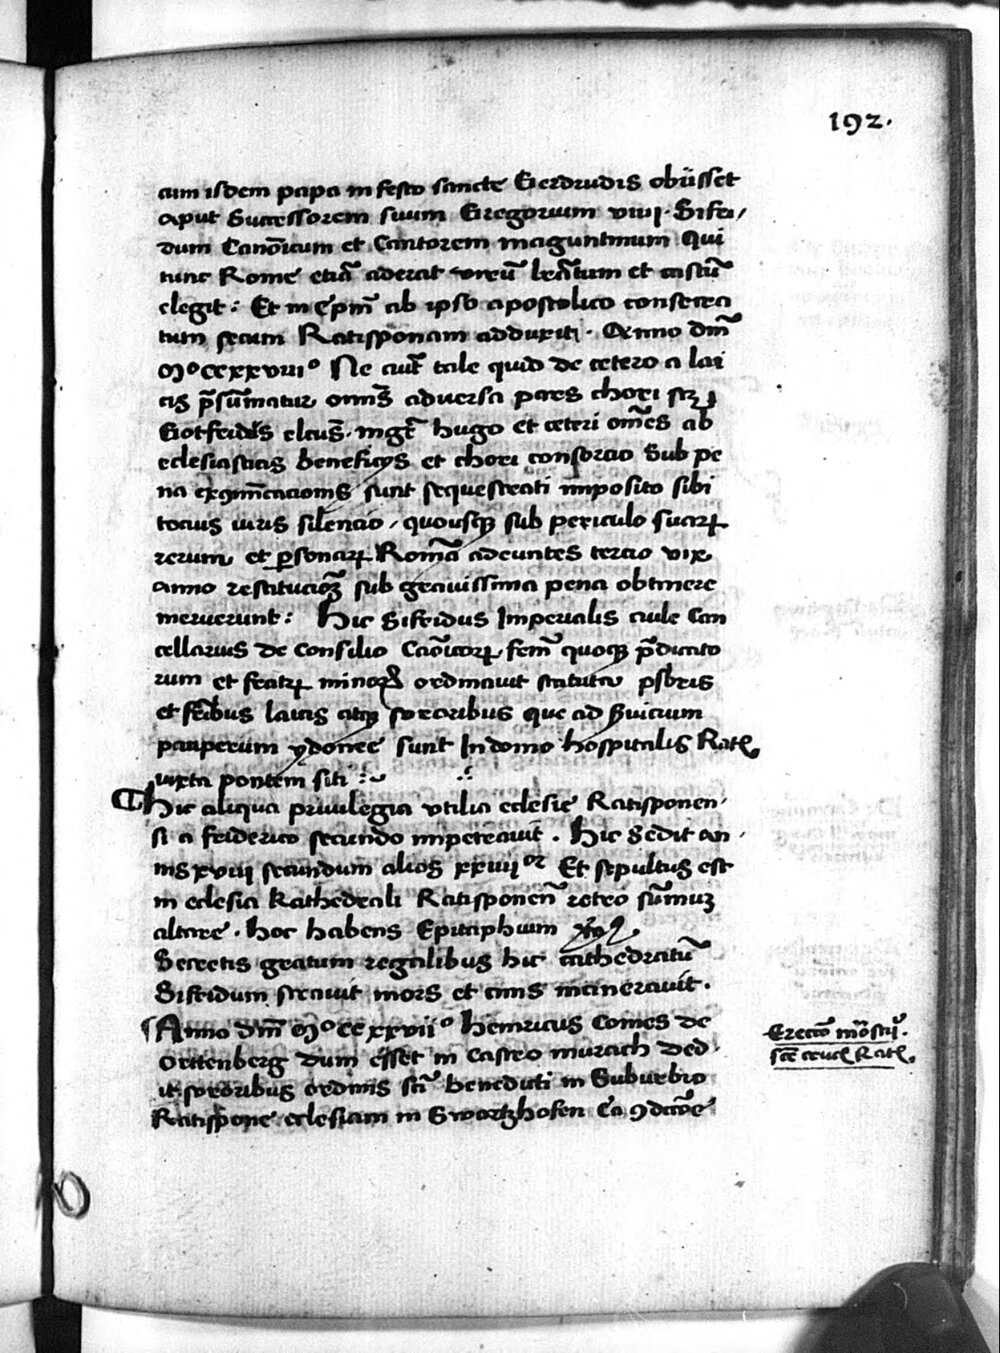 192.
cum isdem papa in festo sancte Gerdrudis obiisset
aput Successorem suum Gregorium viiij. Sifri/
dum Canoīcum et Cantorem maguntinum qui
tunc Rome etiā aderat virū lrātum et castū
elegit: Et in Ep̄m ab ipso apostolico consecra
tum secum Ratisponam adduxit. Anno dm̄
Mº ccxxviiº Ne aut̄ tale quid de cetero a lai
cis p̄sūmatur om̄s adversa pars chori scz
Gotfridus elcūs. mgr̄ hugo et ceteri om̄es ab
eclesiasticis beneficijs et chori consorcio Sub pe
na exꝯmm̄cacionis sunt sequestrati imposito sibi
tocius iuris silencio, quousqꝫ sub periculo suarꝝ
rerum et ꝑsonarꝝ Romā adeuntes tercio vix
anno restitucioꝫ sub gravissima pena obtinere
meruerunt: Hic Sifridus Imperialis aule Can
cellarius de Consilio Caōicorꝝ fr̄m quoqꝫ p̄dicato
rum et fratrꝝ minorꝝ ordinavit statuta psb̄ris
et frībus laicis atqꝫ sororibus que ad ẜuicium
pauperum ydonee sunt In domo hospitalis Ratꝭ
iuxta pontem siti
Hic aliqua privilegia utilia eclesie Ratisponen
si a friderico secundo impetravit. Hic Sedit an
nis xviiij secundum alios xxiiijºʳ Et sepultus est
in eclesia kathedrali Ratisponen̄ retro sūmuꝫ
altare. hoc habens Epitaphium
Decretis gratum regalibus hic cathedratū
Sifridum stravit mors et cinis incineravit.
Anno dm̄ Mº cc xxviiº Heinricus Comes de
Orttenberg dum esset in Castro murach Ded
it sororibus ordinis sct̄i benedicti in Suburbio
Ratisꝑone eclesiam in Swartzhofen Ea ꝯdicōe
Erectō mōstrij.
sct̄e crucꝭ Ratꝭ.